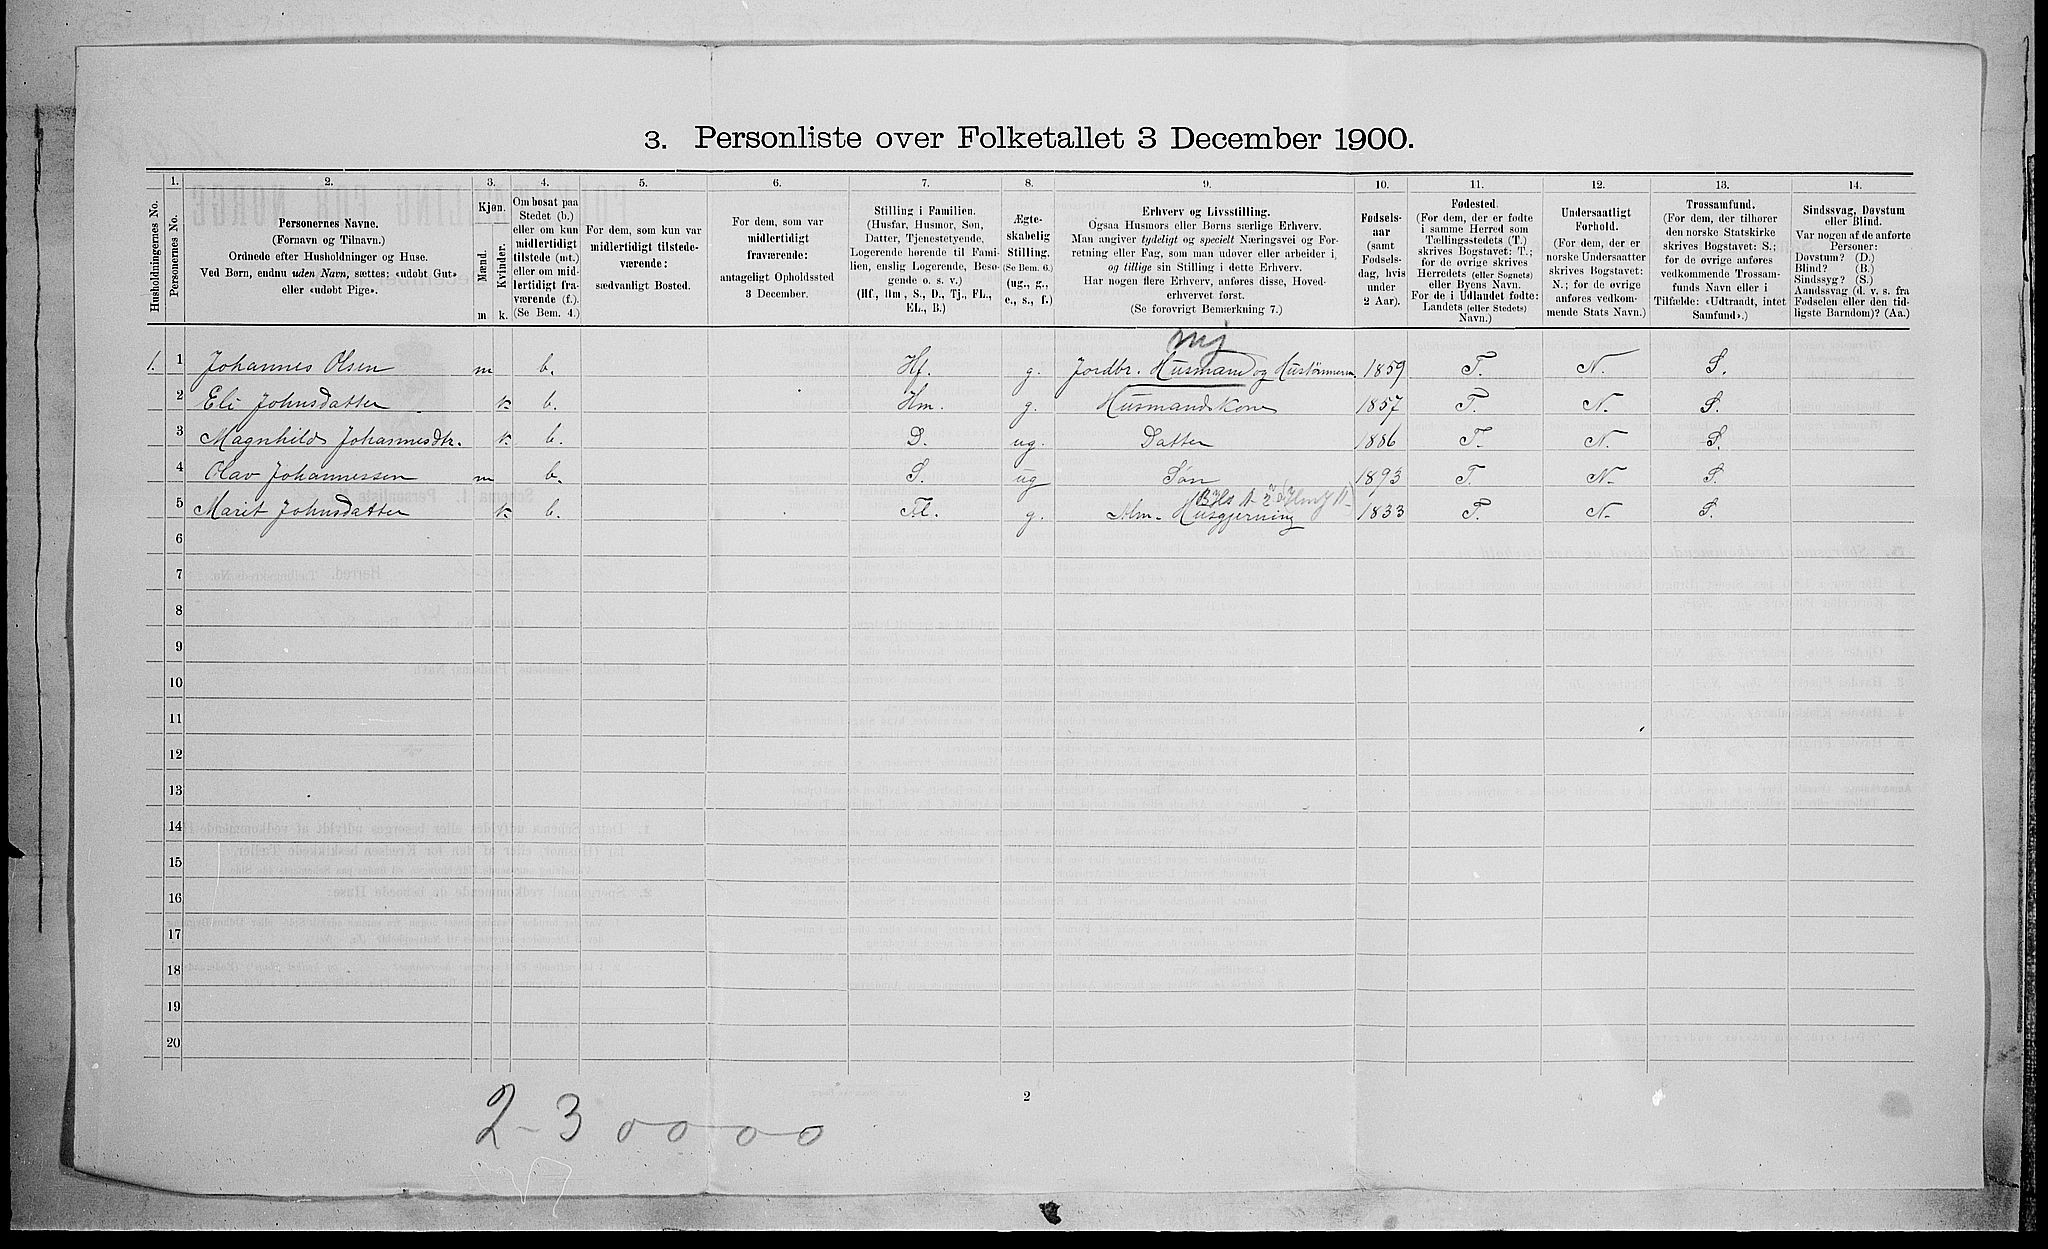 3. Personliste over Folketallet 3 December 1900.
Husholdningernes No.
1. Personernes No.
2. Personernes Navne.
(Fornavn og Tilnavn.)
Ordnede efter Husholdninger og Huse.
Ved Børn, endnu uden Navn, sættes: «udøbt Gut»
eller «udøbt Pige».
3. Kjøn.
Mænd. Kvinder.
m k.
4. Om bosat paa
Stedet (b.)
eller om kun
midlertidigt
tilstede (mt.)
eller om mid-
lertidigt fra-
værende (f.).
(Se Bem. 4.)
5. For dem, som kun var
midlertidigt tilstede-
værende:
sædvanligt Bosted.
6. For dem, som var
midlertidigt
fraværende:
antageligt Opholdssted
3 December.
7. Stilling i Familien.
(Husfar, Husmor, Søn,
Datter, Tjenestetyende,
Logerende hørende til Fami-
lien, enslig Logerende, Besø-
gende o. s. v.)
(Hf., Hm., S., D., Tj., FL.,
EL., B.)
8. Ægte-
skabelig
Stilling.
(Se Bem. 6.)
(ug., g.,
e., s., f.)
9. Erhverv og Livsstilling.
Ogsaa Husmors eller Børns særlige Erhverv.
Man angiver tydeligt og specielt Næringsvei og For-
retning eller Fag, som man udøver eller arbeider i,
og tillige sin Stilling i dette Erhverv.
Har nogen flere Erhverv, anføres disse, Hoved-
erhvervet først.
(Se forøvrigt Bemærkning 7.)
10. Fødsels-
aar
(samt
Fødsels-
dag, hvis
under
2 Aar).
11. Fødested.
(For dem, der er fødte
i samme Herred som
Tællingsstedets (T.)
skrives Bogstavet: T.;
for de øvrige skrives
Herredets (eller Sognets)
eller Byens Navn.
For de i Udlandet fødte:
Landets (eller Stedets)
Navn.)
12. Undersaatligt
Forhold.
(For dem, der er
norske Undersaatter
skrives Bogstavet:
N.; for de øvrige
anføres vedkom-
mende Stats Navn.)
13. Trossamfund.
(For dem, der tilhører
den norske Statskirke
skrives Bogstavet: S.;
for de øvrige anføres
vedkommende Trossam-
funds Navn eller i
Tilfælde: «Udtraadt, intet
Samfund».)
14. Sindssvag, Døvstum
eller Blind.
Var nogen af de anførte
Personer:
Døvstum? (D.)
Blind? (B.)
Sindssyg? (S.)
Aandssvag (d. v. s. fra
Fødselen eller den tid-
ligste Barndom)? (Aa.)
1. 1 Johannes Olsen m b. Hf. g. Jordbr. Husmand og Hustømmerm. 1859 T. N. S.
2 Eli Johnsdatter k b. Hm. g. Husmandskone 1857 T. N. S.
3 Magnhild Johannesdtr. k b. D. ug. Datter 1886 T. N. S.
4 Olav Johannessen m b. S. ug Søn 1893 T. N. S.
5 Marit Johnsdatter k b. Fl. g. Alm. Husgjerning 1833 T. N. S.
6
7
8
9
10
11
12
13
14
15
16
17
18
19
20
2
2-3 00 00